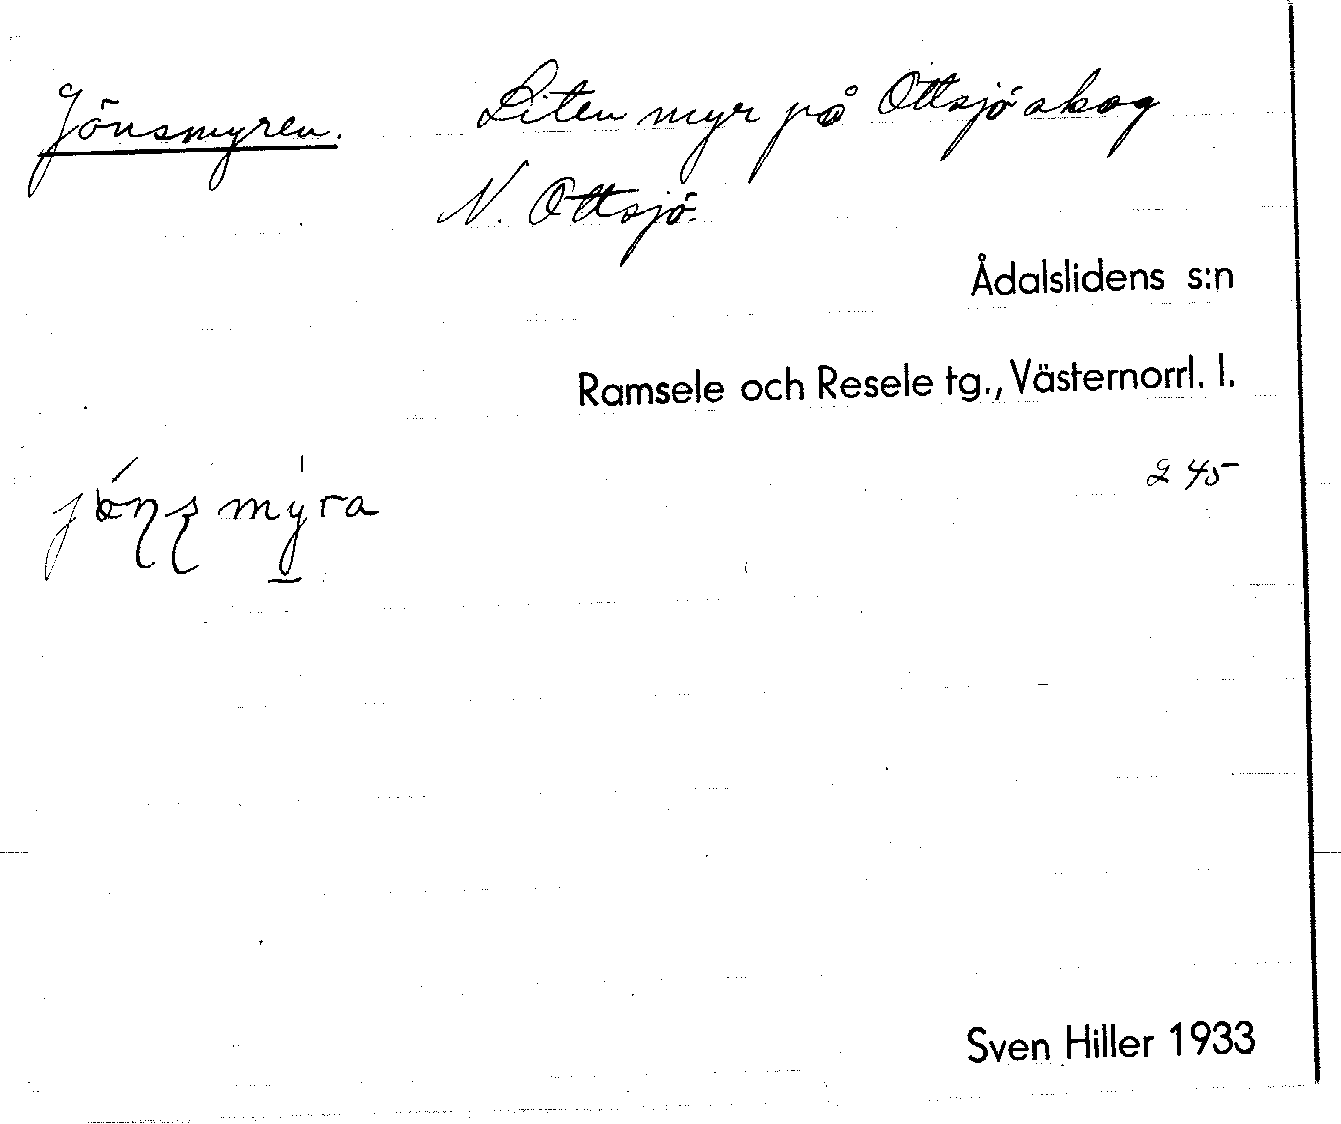 Jönsmyren. Liten myr på Ottsjö skog
N. Ottsjö.
Ådalslidens s:n
Ramsele och Resele tg., Västernorrl. l.
245
Sven Hiller 1933